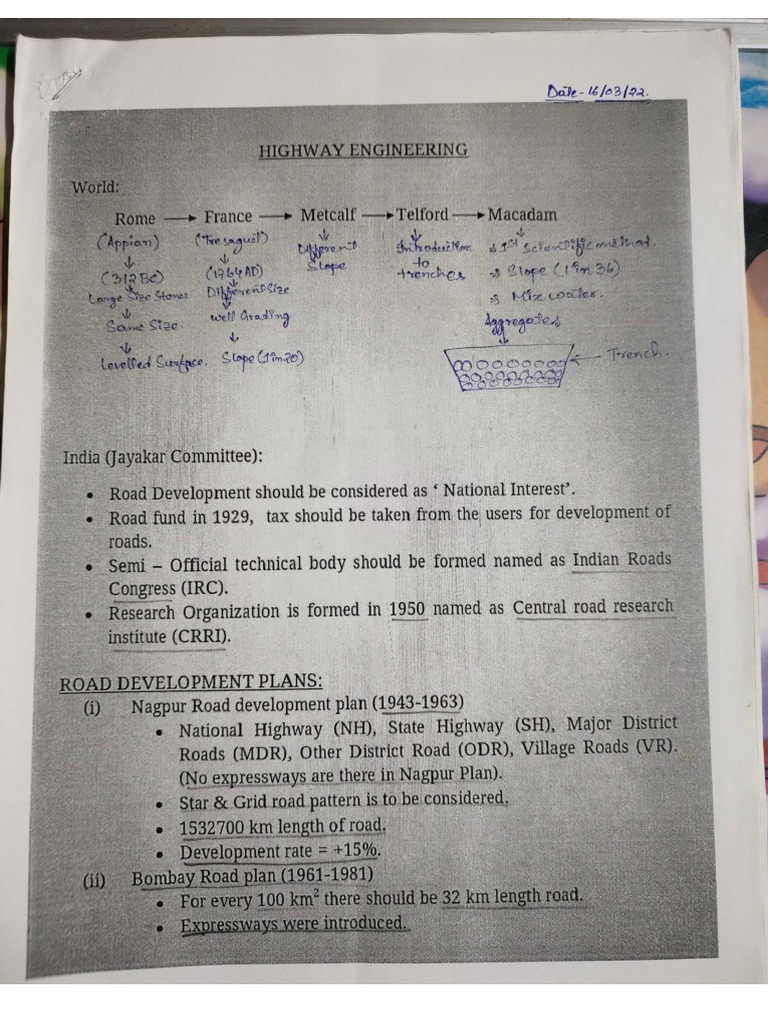 Date- 16/03/22.
HIGHWAY ENGINEERING
World:
Rome → France → Metcalf → Telford → Macadam
(Appian) (Tresaguet) Different Introduction → 1st Scientific method.
↓ ↓ Slope to → Slope (1 in 36)
(312 BC) (1764 AD) trenches → Mix water.
Large Size Stones Different Size
↓ ↓
Same Size. Well Grading Aggregates
↓ ↓
Levelled Surface. Slope (1 in 20) ← Trench.
India (Jayakar Committee):
• Road Development should be considered as ‘ National Interest’.
• Road fund in 1929, tax should be taken from the users for development of
roads.
• Semi – Official technical body should be formed named as Indian Roads
Congress (IRC).
• Research Organization is formed in 1950 named as Central road research
institute (CRRI).
ROAD DEVELOPMENT PLANS:
(i) Nagpur Road development plan (1943-1963)
• National Highway (NH), State Highway (SH), Major District
Roads (MDR), Other District Road (ODR), Village Roads (VR).
(No expressways are there in Nagpur Plan).
• Star & Grid road pattern is to be considered.
• 1532700 km length of road.
• Development rate = +15%.
(ii) Bombay Road plan (1961-1981)
• For every 100 km² there should be 32 km length road.
• Expressways were introduced.